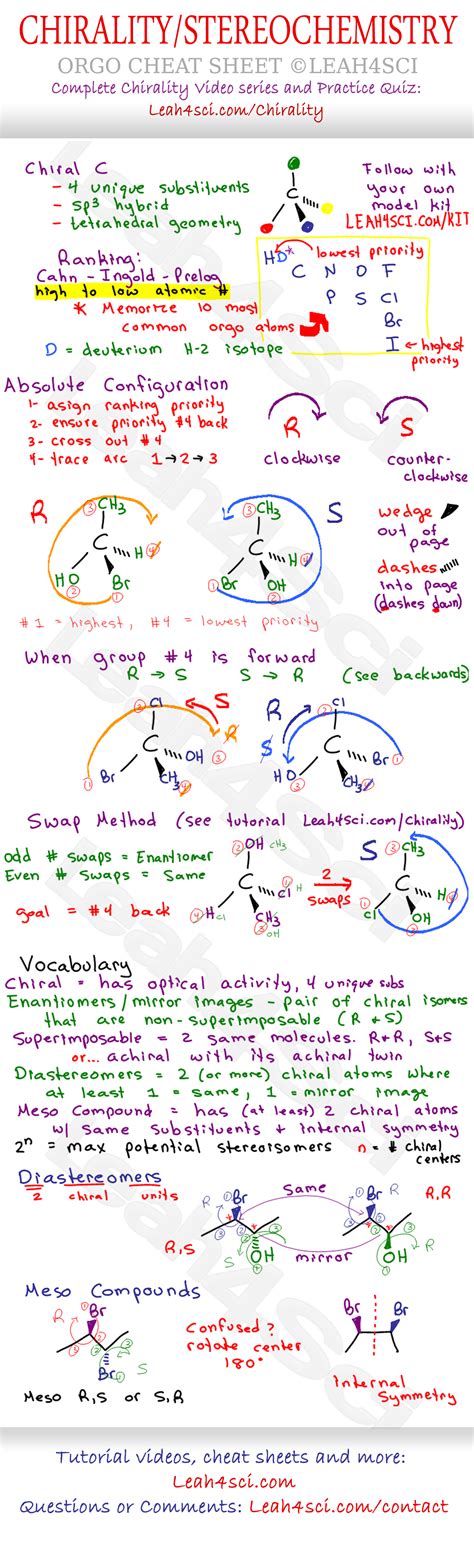 CHIRALITY/STEREOCHEMISTRY
ORGO CHEAT SHEET ©LEAH4SCI
Complete Chirality Video series and Practice Quiz:
Leah4sci.com/Chirality
Chiral C
- 4 unique substituents
- sp3 hybrid
- tetrahedral geometry
C
Follow with
your own
model kit
LEAH4SCI.COM/KIT
Ranking:
Cahn - Ingold - Prelog
high to low atomic #
* Memorize 10 most
common orgo atoms
D = deuterium H-2 isotope
HD* lowest priority
C N O F
P S Cl
Br
I ← highest
priority
Absolute Configuration
1- asign ranking priority
2- ensure priority #4 back
3- cross out #4
4- trace arc 1→2→3
R
clockwise
S
counter-
clockwise
R
③ CH3
C
H ④
HO
②
Br
①
③ CH3
C
H ④
① Br
OH
②
S
wedge
out of
page
dashes
into page
(dashes down)
#1 = highest, #4 = lowest priority
When group #4 is forward
R → S S → R (see backwards)
② Cl
C
OH
③
① Br
CH3 ④
S
R
R
S
② Cl
C
Br ①
HO
③
CH3 ④
Swap Method (see tutorial Leah4sci.com/chirality)
odd # swaps = Enantiomer
Even # Swaps = Same
goal = #4 back
② OH CH3
C
① Cl H
④ H Cl
CH3
③ OH
2
swaps
S
③ CH3
C
H ④
Cl
①
OH
②
Vocabulary
Chiral = has optical activity, 4 unique subs
Enantiomers/mirror images - pair of chiral isomers
that are non-superimposable (R & S)
Superimposable = 2 same molecules. R&R, S&S
or... achiral with its achiral twin
Diastereomers = 2 (or more) chiral atoms where
at least 1 = same, 1 = mirror image
Meso Compound = has (at least) 2 chiral atoms
w/ same substituents + internal symmetry
2n = max potential stereoisomers n = # chiral
centers
Diastereomers
2 chiral units
R,S
R
Br
OH
S
same
mirror
R
Br
OH
R
R,R
Meso Compounds
R
Br
Br
S
Meso R,S or S,R
Confused?
rotate center
180°
Br Br
Internal
Symmetry
Tutorial videos, cheat sheets and more:
Leah4sci.com
Questions or Comments: Leah4sci.com/contact